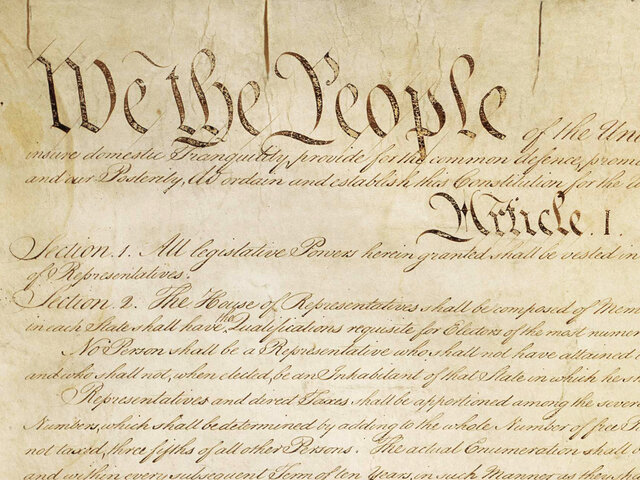 We the People of the Uni
insure domestic Tranquility, provide for the common defence, prom
and our Posterity, do ordain and establish this Constitution for the
Article. I.
Section. 1. All legislative Powers herein granted shall be vested in
of Representatives.
Section. 2. The House of Representatives shall be composed of Mem
in each State shall have the Qualifications requisite for Electors of the most numer
No Person shall be a Representative who shall not have attained
and who shall not, when elected, be an Inhabitant of that State in which he s
Representatives and direct Taxes shall be apportioned among the seve
Numbers, which shall be determined by adding to the whole Number of free
not taxed, three fifths of all other Persons. The actual Enumeration shall
and within every subsequent Term of ten Years, in such Manner as they sha